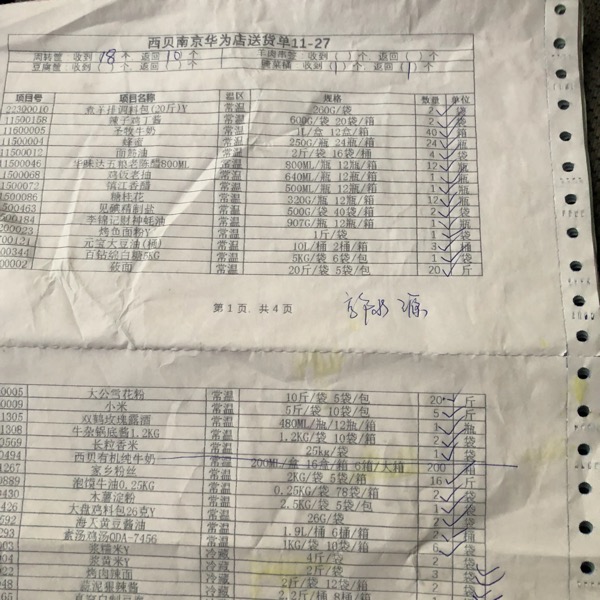 西贝南京华为店送货单11-27
周转筐 收到(18)个 返回(10)个
豆腐筐 收到( )个 返回( )个 ( 1 )个 返回( 1 )个
项目号 项目名称 温区 规格 数量 单位
22300010 煮羊排调料包(20斤)Y 常温 260G/袋 2 袋
11500158 辣子鸡丁酱 常温 600G/袋 20袋/箱 2 袋
11600005 圣牧牛奶 常温 1L/盒 12盒/箱 40
11500004 蜂蜜 常温 250G/瓶 24瓶/箱 24
11500012 面筋油 常温 2斤/袋 16袋/桶 4 袋
11500046 老陈醋800ML 常温 800ML/瓶 12瓶/箱 12 瓶
1500068 鸡饭老抽 常温 640ML/瓶 12瓶/箱 1 瓶
1500072 镇江香醋 常温 500ML/瓶 12瓶/箱 1 瓶
1500086 糖桂花 常温 320G/瓶 12瓶/箱 12 瓶
500463 精制盐 常温 500G/袋 40袋/箱 2 袋
500184 李锦记财神蚝油 常温 907G/瓶 12瓶/箱 1 瓶
00023 烤鱼面粉Y 常温 1斤/袋 袋
00121 元宝大豆油(桶) 常温 10L/桶 2桶/箱 3 桶
00344 百钻绵白糖5KG 常温 5KG/袋 6袋/包 1 袋
00002 莜面 常温 20斤/袋 5袋/包 20 斤
第1页 共4页
0005 大公雪花粉 常温 10斤/袋 5袋/包 20 斤
0009 小米 常温 5斤/袋 10袋/包 5 斤
1305 双鹤玫瑰露酒 常温 480ML/瓶/12瓶/箱 1 瓶
1308 牛杂锅底酱1.2KG 常温 1.2KG/袋 10袋/箱 2 袋
0569 长粒香米 常温 25kg/袋 1 袋
0494 西贝有机纯牛奶 常温 200ML/盒 16盒/箱 6箱/大箱 200
1267 家乡粉丝 常温 2KG/袋 5袋/箱 16 斤
0889 泡馍牛油0.25KG 常温 0.25KG/袋 78袋/箱 2
0430 木薯淀粉 常温 2.5KG/袋 5袋/包 1 袋
426 大盘鸡料包26克Y 常温 26G/袋 2 袋
592 海天黄豆酱油 常温 1.9L/桶 6桶/箱 2 桶
693 素汤鸡汤QDA-7456 常温 1KG/袋 10袋/箱 6 袋
冷藏 4斤/盒 2
冷藏 2斤/盒 2
022 烤肉辣面 冷藏 2斤/袋 3 袋
冷藏 2斤/袋 12袋/箱 2 袋
冷藏 2.2斤/桶 8桶/箱